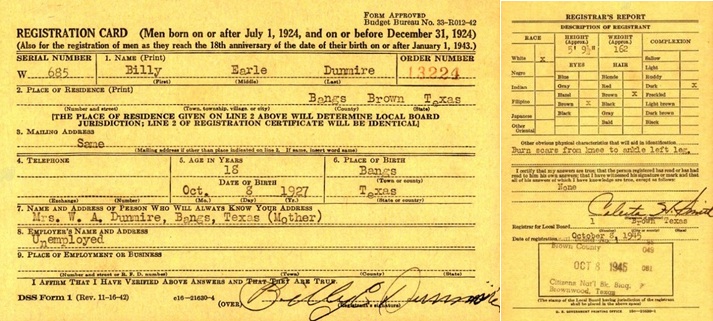 FORM APPROVED
Budget Bureau No. 33-R012-42
REGISTRATION CARD (Men born on or after July 1, 1924, and on or before December 31, 1924)
(Also for the registration of men as they reach the 18th anniversary of the date of their birth on or after January 1, 1943.)
SERIAL NUMBER 1. NAME (Print) ORDER NUMBER
W 685 Billy Earle Dunmire 13224
(First) (Middle) (Last)
2. PLACE OF RESIDENCE (Print)
Bangs Brown Texas
(Number and street) (Town, township, village, or city) (County) (State)
[THE PLACE OF RESIDENCE GIVEN ON LINE 2 ABOVE WILL DETERMINE LOCAL BOARD
JURISDICTION; LINE 2 OF REGISTRATION CERTIFICATE WILL BE IDENTICAL]
3. MAILING ADDRESS
Same
(Mailing address if other than place indicated on line 2. If same, insert word same)
4. TELEPHONE 5. AGE IN YEARS 6. PLACE OF BIRTH
18 Bangs
DATE OF BIRTH (Town or county)
Oct. 8 1927 Texas
(Exchange) (Number) (Mo.) (Day) (Yr.) (State or country)
7. NAME AND ADDRESS OF PERSON WHO WILL ALWAYS KNOW YOUR ADDRESS
Mrs. W. A. Dunmire, Bangs, Texas (Mother)
8. EMPLOYER'S NAME AND ADDRESS
Unemployed
9. PLACE OF EMPLOYMENT OR BUSINESS
(Number and street or R. F. D. number) (Town) (County) (State)
I AFFIRM THAT I HAVE VERIFIED ABOVE ANSWERS AND THAT THEY ARE TRUE.
DSS Form 1 (Rev. 11-16-42) e16—21630-4 (OVER) Billy E. Dunmire
(Registrant's signature)
REGISTRAR'S REPORT
DESCRIPTION OF REGISTRANT
RACE HEIGHT (Approx.) WEIGHT (Approx.) COMPLEXION
5' 9½" 162
White X Sallow
EYES HAIR Light
Negro Blue Blonde Ruddy
Indian Gray Red Dark X
Hazel Brown X Freckled
Filipino Brown X Black Light brown
Japanese Black Gray Dark brown
Other Oriental Bald Black
Other obvious physical characteristics that will aid in identification
Burn scars from knee to ankle left leg.
I certify that my answers are true; that the person registered has read or has had
read to him his own answers; that I have witnessed his signature or mark and that
all of his answers of which I have knowledge are true, except as follows:
None
Registrar for Local Board 1 Brown Texas
Date of registration October 8, 1945
Brown County
049
OCT 8 1945 081
Citizens Nat'l Bk. Bldg.
Brownwood, Texas
(The stamp of the Local Board having jurisdiction of the registrant
shall be placed in the above space)